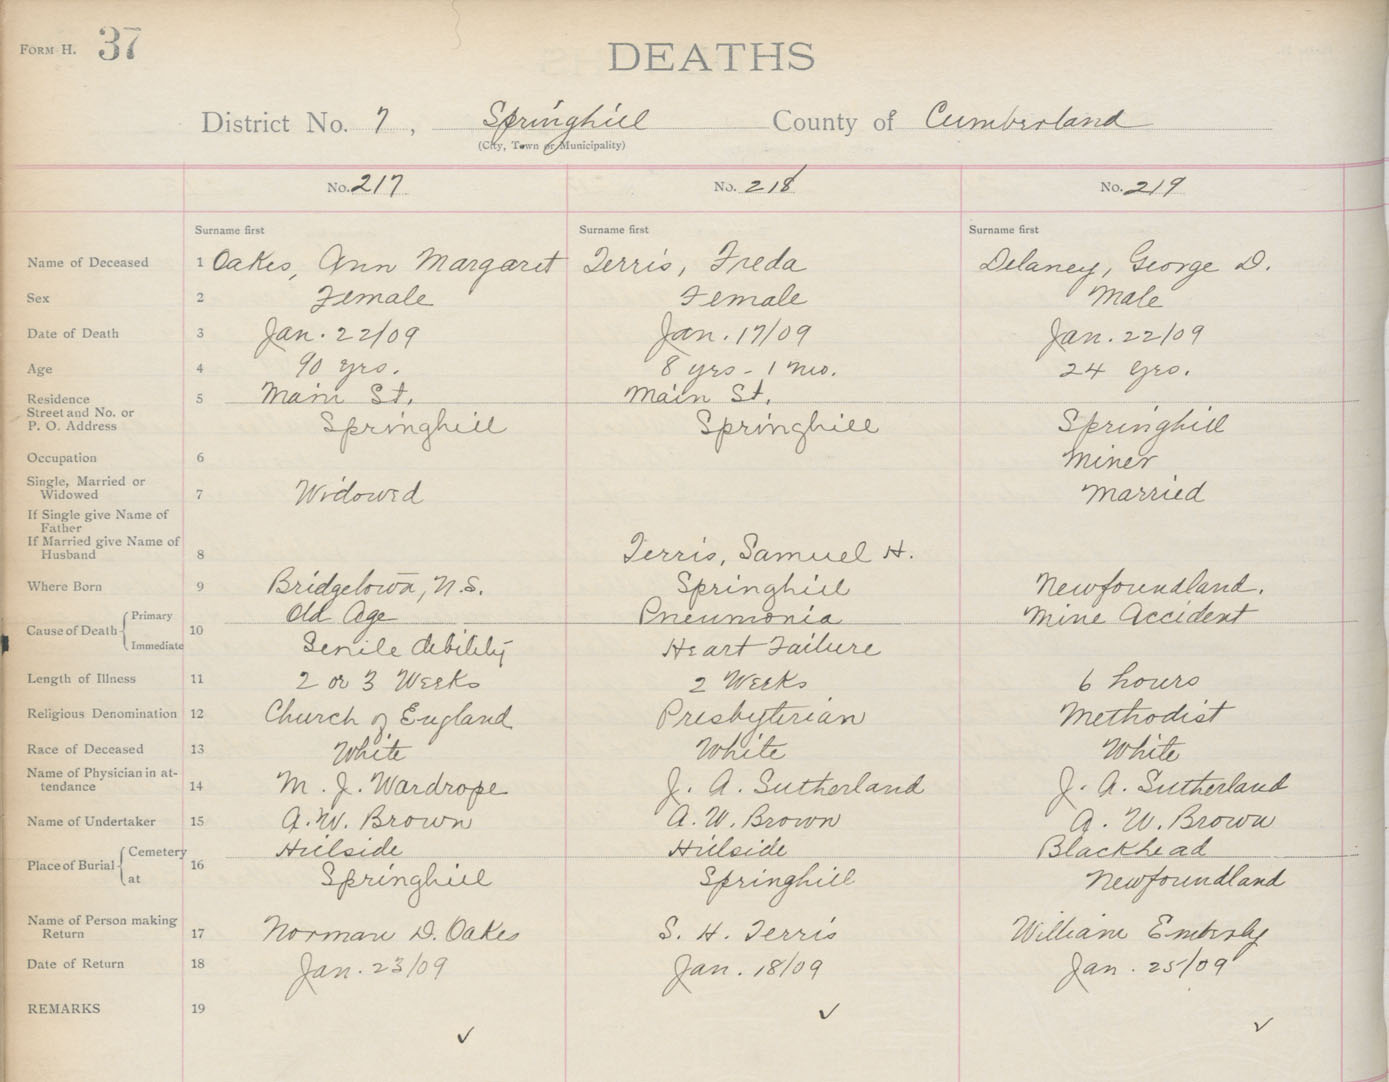 FORM H. 37
DEATHS
District No. 7, Springhill County of Cumberland
(City, Town or Municipality)
No. 217 No. 218 No. 219
Surname first Surname first Surname first
Name of Deceased 1 Oakes, Ann Margaret Terris, Freda Delaney, George D.
Sex 2 Female Female Male
Date of Death 3 Jan. 22/09 Jan. 17/09 Jan. 22/09
Age 4 90 yrs. 8 yrs - 1 mo. 24 yrs.
Residence 5 Main St. Main St.
Street and No. or
P. O. Address Springhill Springhill Springhill
Occupation 6 Miner
Single, Married or
Widowed 7 Widowed Married
If Single give Name of
Father
If Married give Name of
Husband 8 Terris, Samuel H.
Where Born 9 Bridgetown, N.S. Springhill Newfoundland.
Primary Old Age Pneumonia Mine Accident
Cause of Death 10
Immediate Senile debility Heart Failure
Length of Illness 11 2 or 3 Weeks 2 Weeks 6 hours
Religious Denomination 12 Church of England Presbyterian Methodist
Race of Deceased 13 White White White
Name of Physician in at-
tendance 14 M. J. Wardrope J. A. Sutherland J. A. Sutherland
Name of Undertaker 15 A. W. Brown A. W. Brown A. W. Brown
Cemetery Hillside Hillside Blackhead
Place of Burial 16
at Springhill Springhill Newfoundland
Name of Person making
Return 17 Norman D. Oakes S. H. Terris William Emberly
Date of Return 18 Jan. 23/09 Jan. 18/09 Jan. 25/09
REMARKS 19